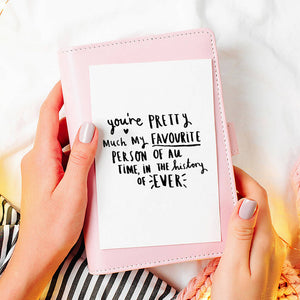 you're PRETTY
Much My FAVOURITE
PERSON OF All
TIME, IN THE history
OF EVER